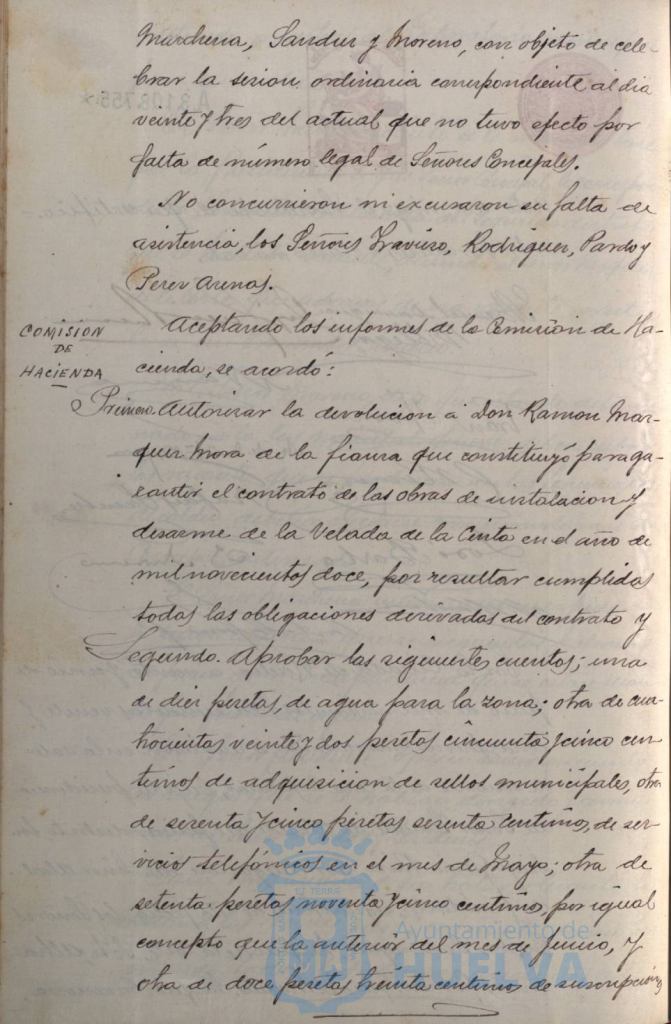 Marchena, Sandur y Moreno, con objeto de cele-
brar la sesion ordinaria correspondiente al dia
veinte y tres del actual que no tuvo efecto por
falta de número legal de Señores Concejales.
No concurrieron ni excusaron su falta de
asistencia, los Señores Travieso, Rodriguez, Pardo y
Perez Arenas.
COMISION
DE
HACIENDA
Aceptando los informes de la Comision de Ha-
cienda, se acordó:
Primero. Autorizar la devolucion á Don Ramon Mar-
quez Mora de la fianza que constituyó para ga-
rantir el contrato de las obras de instalacion y
desarme de la Velada de la Cinta en el año de
mil novecientos doce, por resultar cumplidas
todas las obligaciones derivadas del contrato y
Segundo. Aprobar las siguientes cuentas; una
de diez pesetas, de agua para la zona; otra de cua-
trocientas veinte y dos pesetas cincuenta y cinco cen-
timos de adquisicion de sellos municipales, otra
de sesenta y cinco pesetas sesenta centimos, de ser-
vicios telefónicos en el mes de Mayo; otra de
setenta pesetas noventa y cinco centimos, por igual
concepto que la anterior del mes de Junio, y
otra de doce pesetas treinta centimos de suscripciones
Ayuntamiento de
HUELVA